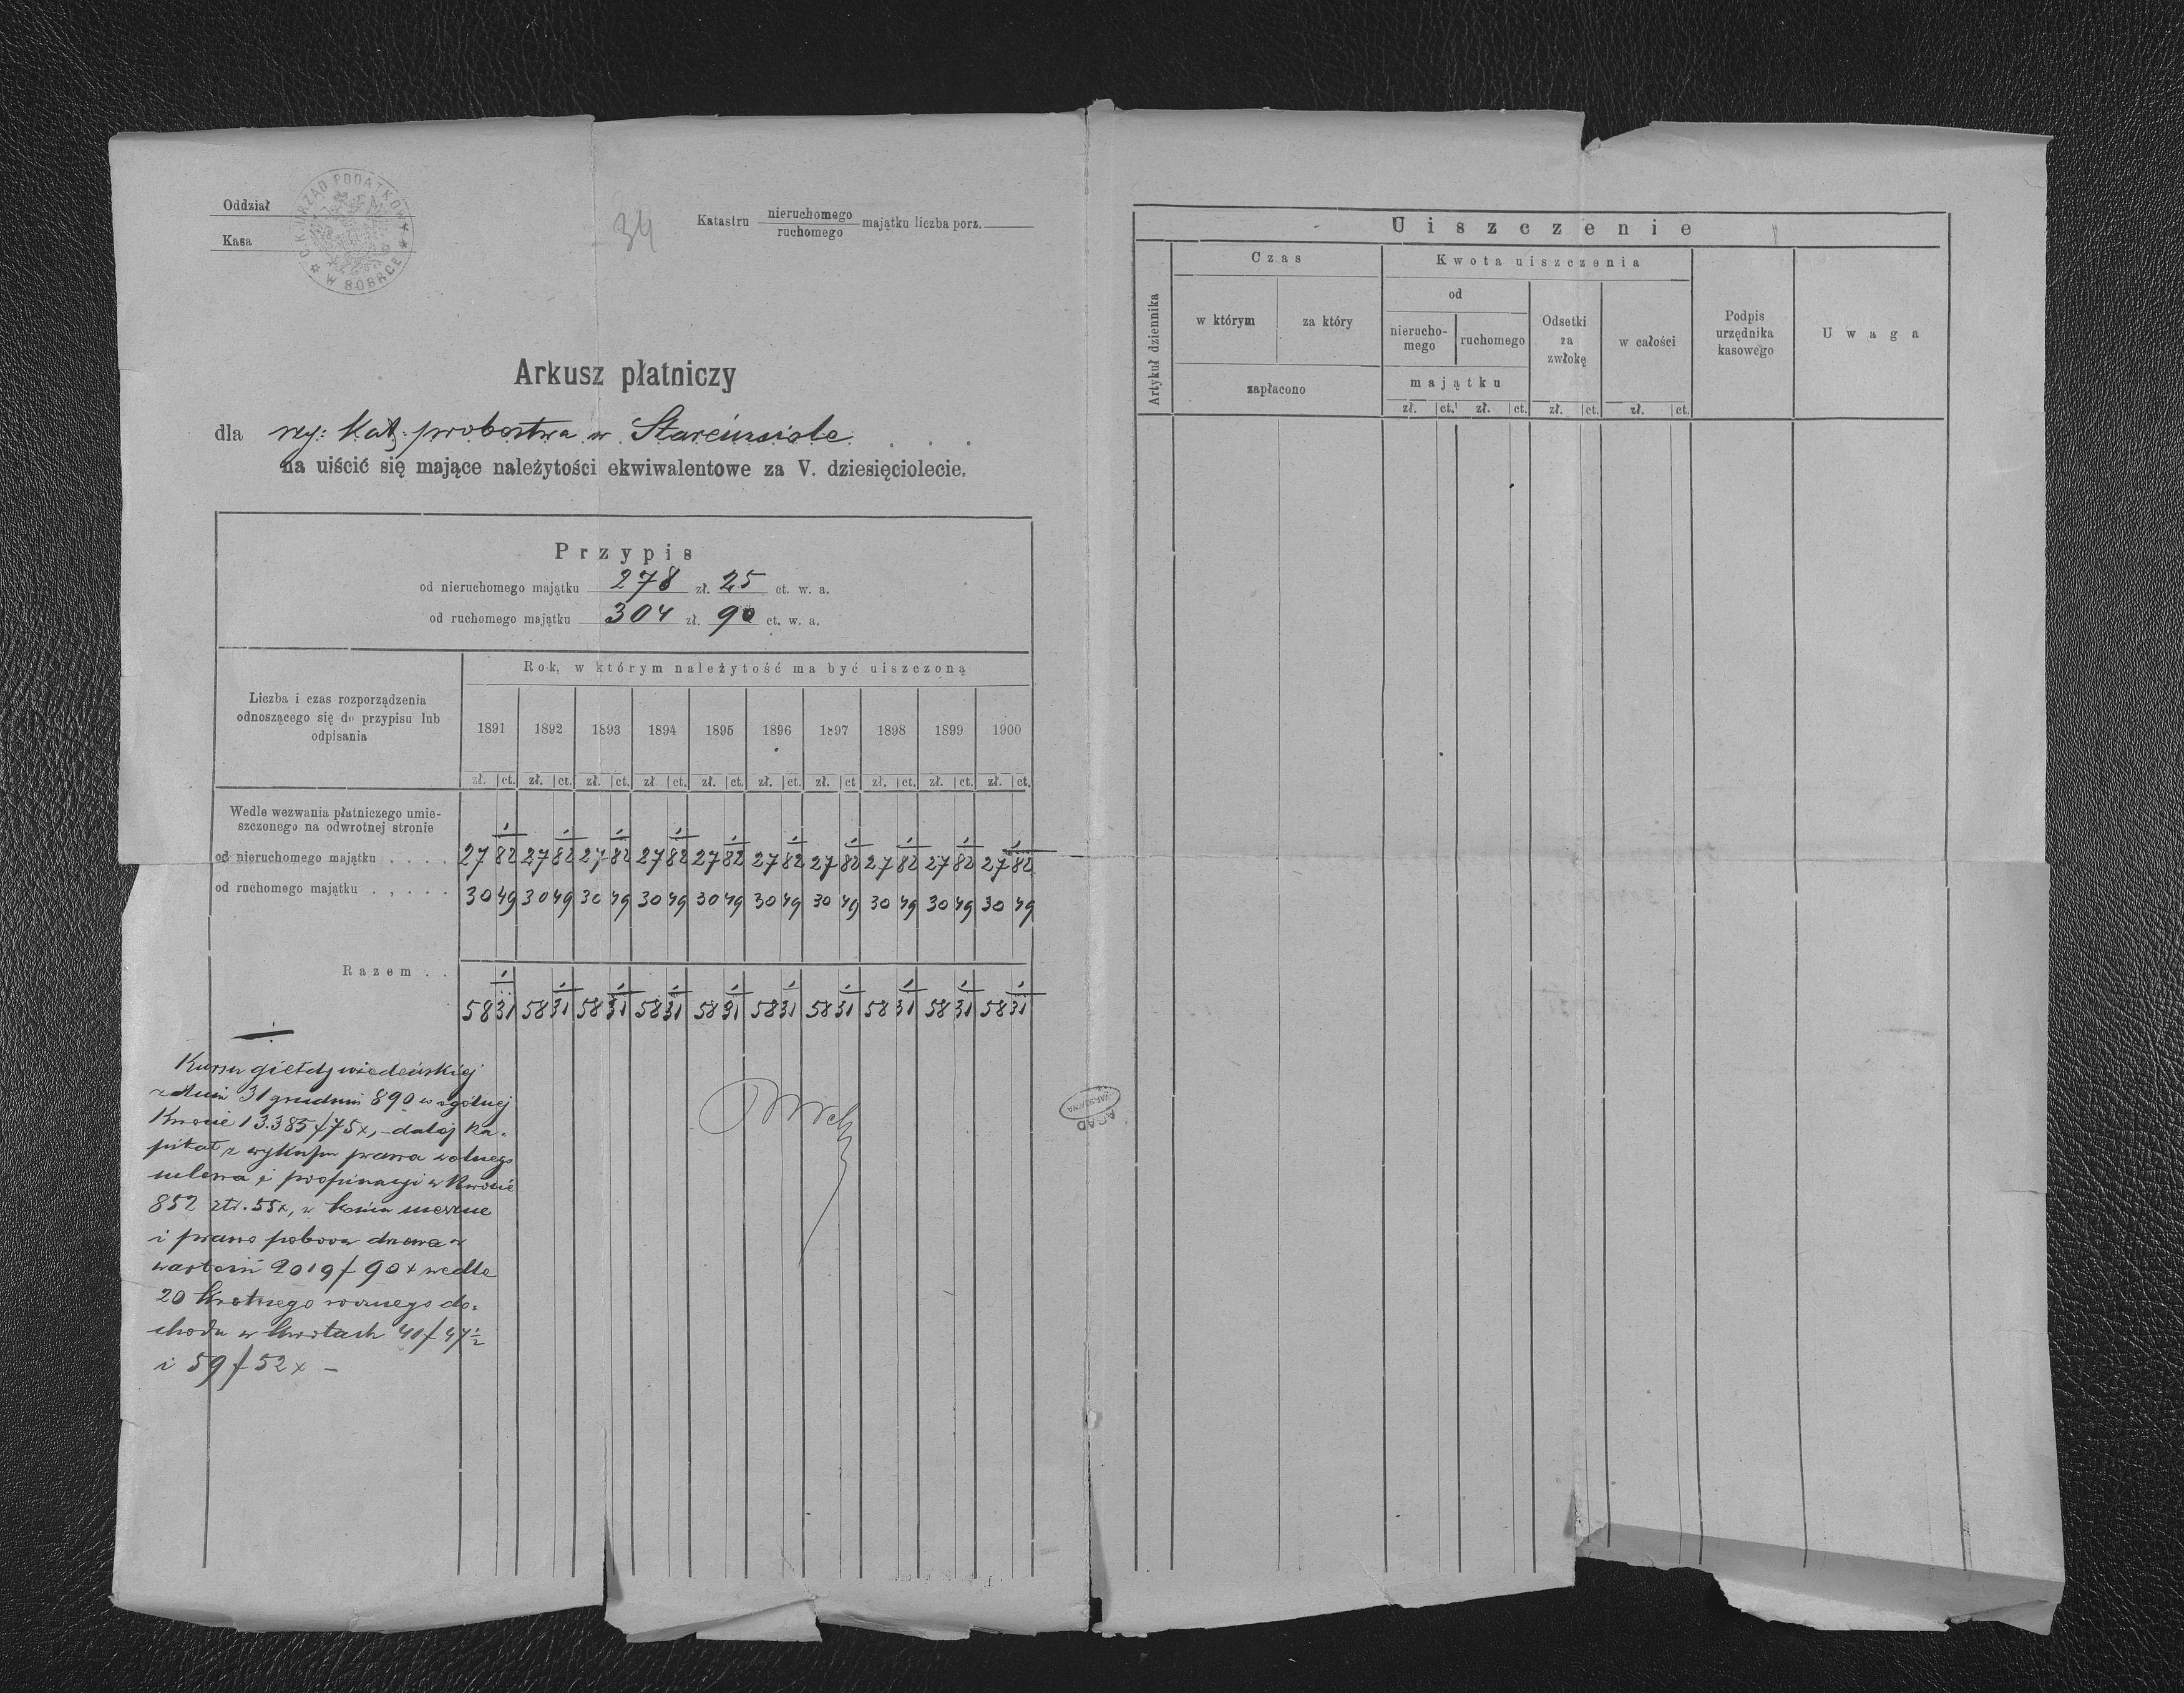 Oddział
Kasa
C. K. URZĄD PODATKOWY W BÓBRCE
34
Katastru nieruchomego ruchomego majątku liczba porz.
Arkusz płatniczy
dla rzy: kat: probostwa w Staremsiole
na uiścić się mające należytości ekwiwalentowe za V. dziesięciolecie.
Przypis
od nieruchomego majątku 278 zł. 25 ct. w. a.
od ruchomego majątku 304 zł. 90 ct. w. a.
Liczba i czas rozporządzenia
odnoszącego się do przypisu lub
odpisania
Rok, w którym należytość ma być uiszczoną
1891 1892 1893 1894 1895 1896 1897 1898 1899 1900
zł. ct. zł. ct. zł. ct. zł ct. zł. ct. zł. ct. zł. ct zł. ct. zł. ct. zł. ct.
Wedle wezwania płatniczego umie-
szczonego na odwrotnej stronie
od nieruchomego majątku . . . . 27 82 27 82 27 82 27 82 27 82 27 82 27 82 27 82 27 82 27 82
od ruchomego majątku . . . . . 30 49 30 49 30 49 30 49 30 49 30 49 30 49 30 49 30 49 30 49
Razem . . 58 31 58 31 58 31 58 31 58 31 58 31 58 31 58 31 58 31 58 31
Kursu giełdy wiedeńskiej
z dnia 31 grudnia 890 w ogólnej
kwocie 13.385 f 75 x, - dalej ka-
pitał z wykupu prawa wolnego
mlewa i propinacyi w kwocie
852 złr. 55 x, w końcu meszne
i prawo poboru drzewa w
wartości 2019 f 90 x wedle
20 krotnego rocznego do-
chodu w kwotach 41 f 47 ½
i 59 f 52 x -
AGAD
WARSZAWA
Uiszczenie
Artykuł dziennika
Czas
w którym
za który
zapłacono
Kwota uiszczenia
od
nierucho-
mego
ruchomego
majątku
Odsetki
za
zwłokę
w całości
Podpis
urzędnika
kasowego
Uwaga
zł. ct. zł. ct. zł. ct. zł. ct.